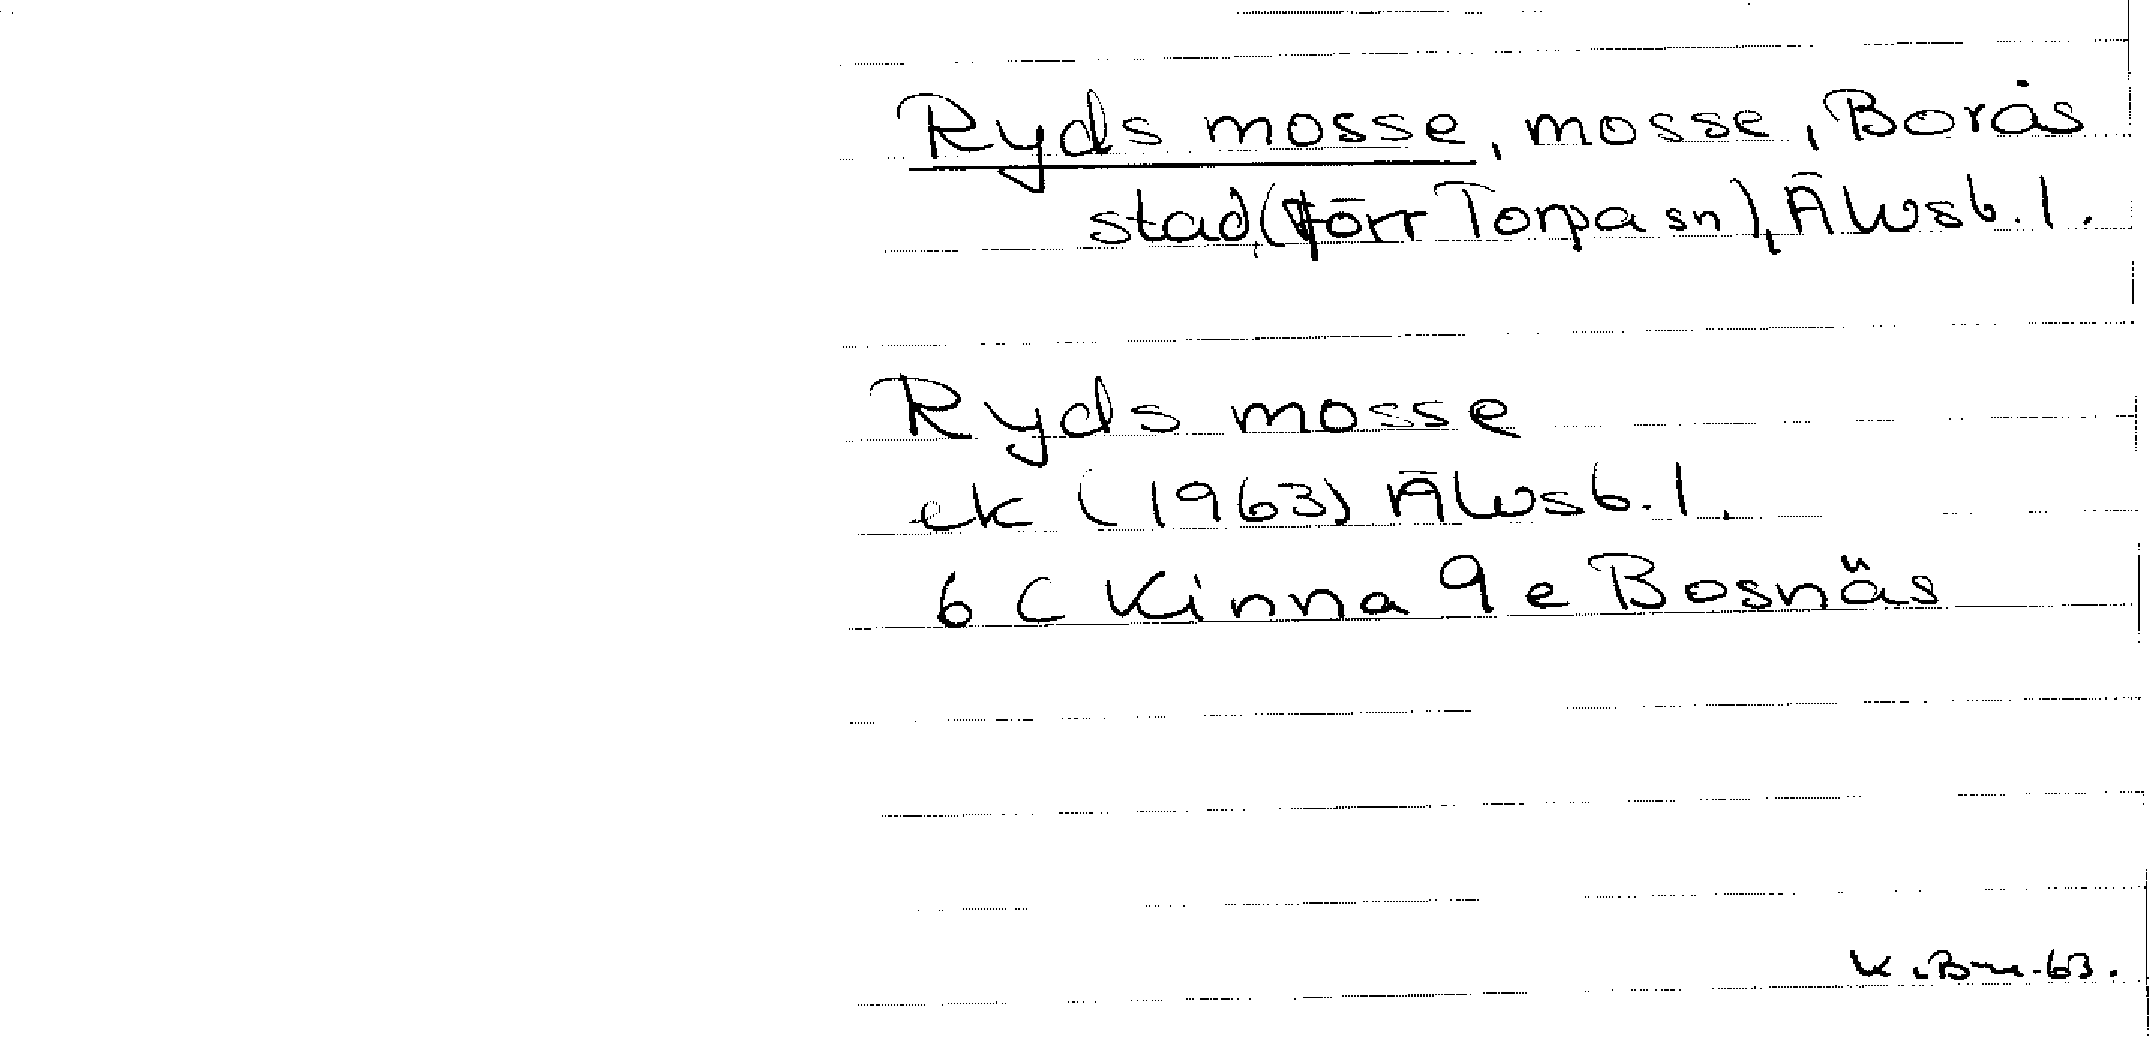 Ryds mosse, mosse, Borås
stad (förr Torpa sn), Älvsb. l.
Ryds mosse
ek (1963) Älvsb. l.
6 C Kinna 9 e Bosnäs
K.Bm-63.